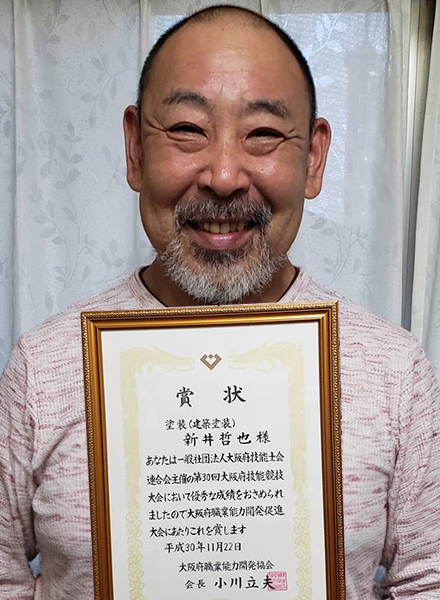 賞状
塗装(建築塗装)
新井哲也様
あなたは一般社団法人大阪府技能士会
連合会主催の第30回大阪府技能競技
大会において優秀な成績をおさめられ
ましたので大阪府職業能力開発促進
大会にあたりこれを賞します
平成30年11月22日
大阪府職業能力開発協会
会長 小川立夫